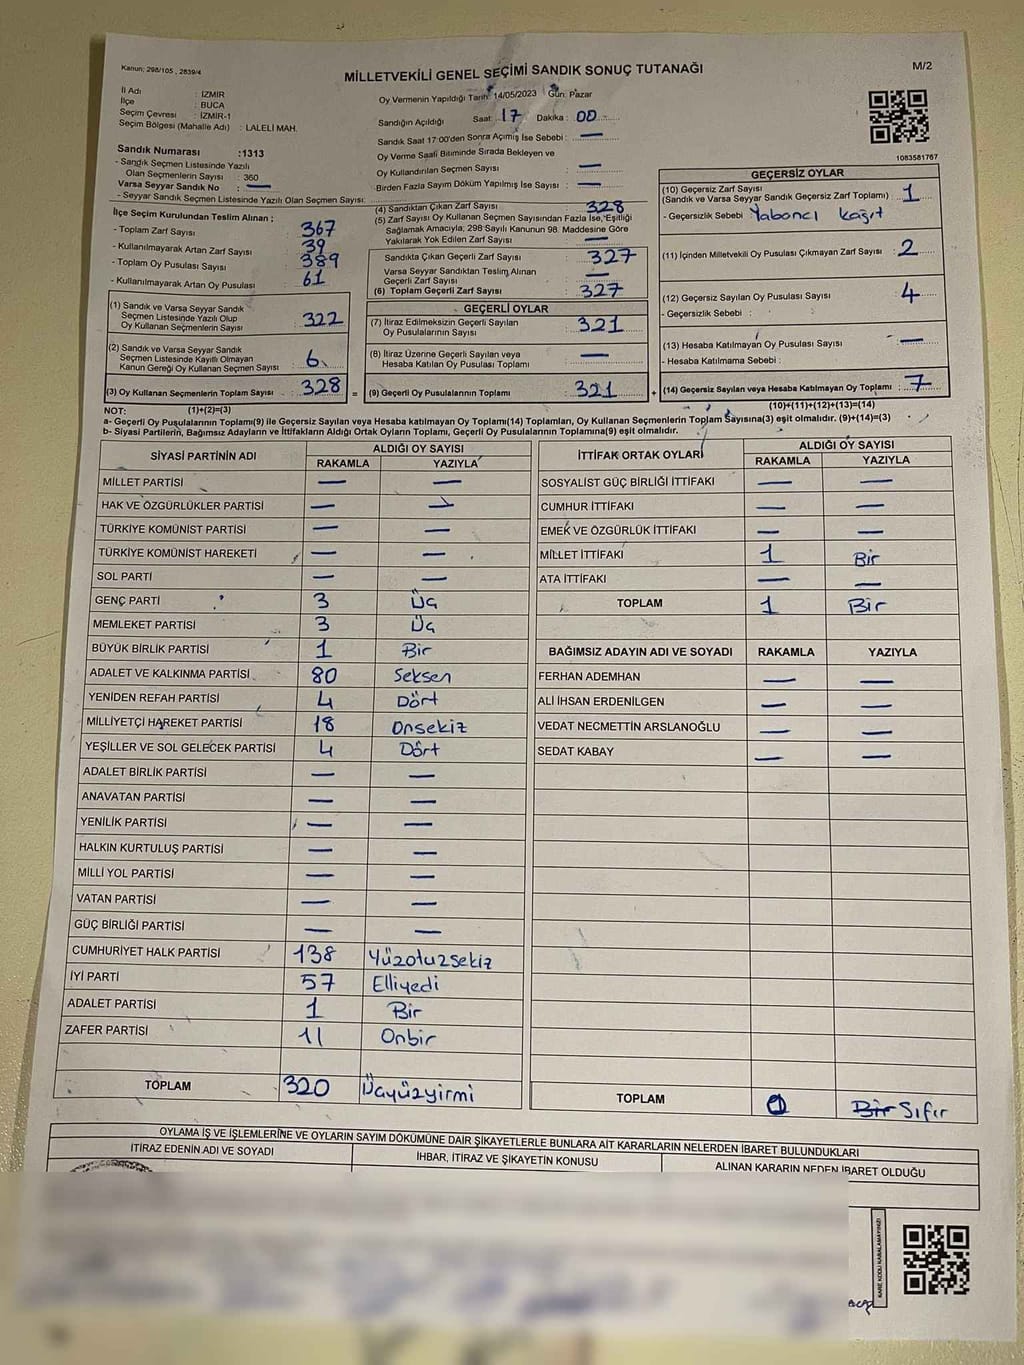 Kanun; 298/105 , 2839/4
MİLLETVEKİLİ GENEL SEÇİMİ SANDIK SONUÇ TUTANAĞI
M/2
İl Adı : İZMİR
İlçe : BUCA
Seçim Çevresi : İZMİR-1
Seçim Bölgesi (Mahalle Adı) : LALELİ MAH.
Oy Vermenin Yapıldığı Tarih: 14/05/2023 Gün: Pazar
Sandığın Açıldığı Saat: 17 Dakika : 00
Sandık Saat 17:00'den Sonra Açılmış İse Sebebi : —
Oy Verme Saati Bitiminde Sırada Bekleyen ve
Oy Kullandırılan Seçmen Sayısı : —
Birden Fazla Sayım Döküm Yapılmış İse Sayısı : —
1083581767
Sandık Numarası :1313
- Sandık Seçmen Listesinde Yazılı
Olan Seçmenlerin Sayısı : 360
Varsa Seyyar Sandık No : —
- Seyyar Sandık Seçmen Listesinde Yazılı Olan Seçmen Sayısı:
İlçe Seçim Kurulundan Teslim Alınan ;
- Toplam Zarf Sayısı : 367
- Kullanılmayarak Artan Zarf Sayısı : 39
- Toplam Oy Pusulası Sayısı : 389
- Kullanılmayarak Artan Oy Pusulası : 61
(1) Sandık ve Varsa Seyyar Sandık
Seçmen Listesinde Yazılı Olup
Oy Kullanan Seçmenlerin Sayısı : 322
(2) Sandık ve Varsa Seyyar Sandık
Seçmen Listesinde Kayıtlı Olmayan
Kanun Gereği Oy Kullanan Seçmen Sayısı : 6
(3) Oy Kullanan Seçmenlerin Toplam Sayısı : 328 =
(4) Sandıktan Çıkan Zarf Sayısı : 328
(5) Zarf Sayısı Oy Kullanan Seçmen Sayısından Fazla İse, Eşitliği
Sağlamak Amacıyla; 298 Sayılı Kanunun 98. Maddesine Göre
Yakılarak Yok Edilen Zarf Sayısı : —
Sandıkta Çıkan Geçerli Zarf Sayısı : 327
Varsa Seyyar Sandıktan Teslim Alınan
Geçerli Zarf Sayısı : —
(6) Toplam Geçerli Zarf Sayısı : 327
GEÇERLİ OYLAR
(7) İtiraz Edilmeksizin Geçerli Sayılan
Oy Pusulalarının Sayısı : 321
(8) İtiraz Üzerine Geçerli Sayılan veya
Hesaba Katılan Oy Pusulası Toplamı : —
(9) Geçerli Oy Pusulalarının Toplamı : 321 +
GEÇERSİZ OYLAR
(10) Geçersiz Zarf Sayısı
(Sandık ve Varsa Seyyar Sandık Geçersiz Zarf Toplamı) : 1
- Geçersizlik Sebebi : Yabancı kağıt
(11) İçinden Milletvekili Oy Pusulası Çıkmayan Zarf Sayısı : 2
(12) Geçersiz Sayılan Oy Pusulası Sayısı : 4
- Geçersizlik Sebebi :
(13) Hesaba Katılmayan Oy Pusulası Sayısı : —
- Hesaba Katılmama Sebebi :
(14) Geçersiz Sayılan veya Hesaba Katılmayan Oy Toplamı : 7
(10)+(11)+(12)+(13)=(14)
NOT: (1)+(2)=(3)
a- Geçerli Oy Pusulalarının Toplamı(9) ile Geçersiz Sayılan veya Hesaba katılmayan Oy Toplamı(14) Toplamları, Oy Kullanan Seçmenlerin Toplam Sayısına(3) eşit olmalıdır. (9)+(14)=(3)
b- Siyasi Partilerin, Bağımsız Adayların ve İttifakların Aldığı Ortak Oyların Toplamı, Geçerli Oy Pusulalarının Toplamına(9) eşit olmalıdır.
SİYASİ PARTİNİN ADI ALDIĞI OY SAYISI
RAKAMLA YAZIYLA
MİLLET PARTİSİ — —
HAK VE ÖZGÜRLÜKLER PARTİSİ — —
TÜRKİYE KOMÜNİST PARTİSİ — —
TÜRKİYE KOMÜNİST HAREKETİ — —
SOL PARTİ — —
GENÇ PARTİ 3 Üç
MEMLEKET PARTİSİ 3 Üç
BÜYÜK BİRLİK PARTİSİ 1 Bir
ADALET VE KALKINMA PARTİSİ 80 Seksen
YENİDEN REFAH PARTİSİ 4 Dört
MİLLİYETÇİ HAREKET PARTİSİ 18 Onsekiz
YEŞİLLER VE SOL GELECEK PARTİSİ 4 Dört
ADALET BİRLİK PARTİSİ — —
ANAVATAN PARTİSİ — —
YENİLİK PARTİSİ — —
HALKIN KURTULUŞ PARTİSİ — —
MİLLİ YOL PARTİSİ — —
VATAN PARTİSİ — —
GÜÇ BİRLİĞİ PARTİSİ — —
CUMHURİYET HALK PARTİSİ 138 Yüzotuzsekiz
İYİ PARTİ 57 Elliyedi
ADALET PARTİSİ 1 Bir
ZAFER PARTİSİ 11 Onbir
TOPLAM 320 Üçyüzyirmi
İTTİFAK ORTAK OYLARI ALDIĞI OY SAYISI
RAKAMLA YAZIYLA
SOSYALİST GÜÇ BİRLİĞİ İTTİFAKI — —
CUMHUR İTTİFAKI — —
EMEK VE ÖZGÜRLÜK İTTİFAKI — —
MİLLET İTTİFAKI 1 Bir
ATA İTTİFAKI — —
TOPLAM 1 Bir
BAĞIMSIZ ADAYIN ADI VE SOYADI RAKAMLA YAZIYLA
FERHAN ADEMHAN — —
ALİ İHSAN ERDENİLGEN — —
VEDAT NECMETTİN ARSLANOĞLU — —
SEDAT KABAY — —
TOPLAM 0 Bir Sıfır
OYLAMA İŞ VE İŞLEMLERİNE VE OYLARIN SAYIM DÖKÜMÜNE DAİR ŞİKAYETLERLE BUNLARA AİT KARARLARIN NELERDEN İBARET BULUNDUKLARI
İTİRAZ EDENİN ADI VE SOYADI İHBAR, İTİRAZ VE ŞİKAYETİN KONUSU ALINAN KARARIN NEDEN İBARET OLDUĞU
KARE KODU KARALAMAYINIZ!